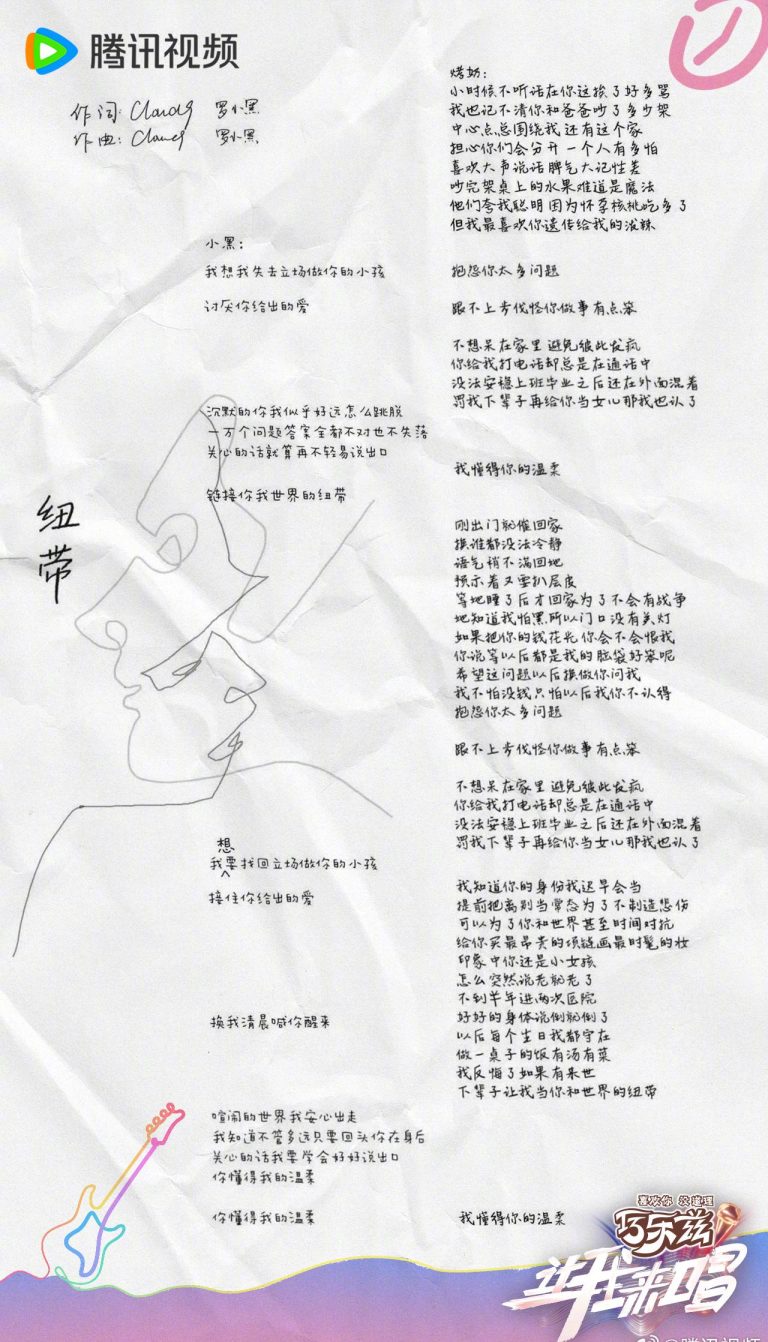 腾讯视频
作词: Cloud9 罗小黑
作曲: Cloud9 罗小黑
纽带
小黑:
我想我失去立场做你的小孩
讨厌你给出的爱
沉默的你我似乎好远怎么跳脱
一万个问题答案全都不对也不失落
关心的话就算再不轻易说出口
链接你我世界的纽带
想
我要找回立场做你的小孩
接住你给出的爱
换我清晨喊你醒来
喧闹的世界我安心出走
我知道不管多远只要回头你在身后
关心的话我要学会好好说出口
你懂得我的温柔
你懂得我的温柔
烤奶:
小时候不听话在你这挨了好多骂
我也记不清你和爸爸吵了多少架
中心点总围绕我还有这个家
担心你们会分开一个人有多怕
喜欢大声说话脾气大记性差
吵完架桌上的水果难道是魔法
他们夸我聪明因为怀孕核桃吃多了
但我最喜欢你遗传给我的泼辣
抱怨你太多问题
跟不上步伐怪你做事有点笨
不想呆在家里避免彼此发疯
你给我打电话却总是在通话中
没法安稳上班毕业之后还在外面混着
罚我下辈子再给你当女儿那我也认了
我懂得你的温柔
刚出门就催回家
换谁都没法冷静
语气稍不满回她
预示着又要扒层皮
等她睡了后才回家为了不会有战争
她知道我怕黑所以门口没有关灯
如果把你的钱花光你会不会恨我
你说等以后都是我的脑袋好笨呢
希望这问题以后换做你问我
我不怕没钱只怕以后我你不认得
抱怨你太多问题
跟不上步伐怪你做事有点笨
不想呆在家里避免彼此发疯
你给我打电话却总是在通话中
没法安稳上班毕业之后还在外面混着
罚我下辈子再给你当女儿那我也认了
我知道你的身份我迟早会当
提前把离别当常态为了不制造悲伤
可以为了你和世界甚至时间对抗
给你买最昂贵的项链画最时髦的妆
印象中你还是小女孩
怎么突然说老就老了
不到半年进两次医院
好好的身体说倒就倒了
以后每个生日我都守在
做一桌子的饭有汤有菜
我反悔了如果有来世
下辈子让我当你和世界的纽带
我懂得你的温柔
喜欢你 没道理
巧乐兹
让我来唱
@腾讯视频